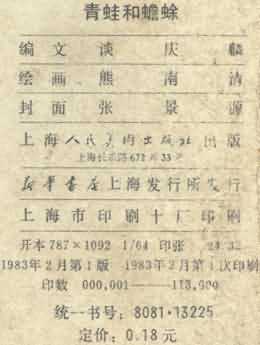 青蛙和蟾蜍
编文 谈庆麟
绘画 熊南清
封面 张景源
上海人民美术出版社出版
上海长乐路672弄33号
新华书店上海发行所发行
上海市印刷十厂印刷
开本 787×1092 1/64 印张
1983年2月第1版 1983年2月第1次印刷
印数 000,001——
统一书号：8081·13225
定价：0.18元